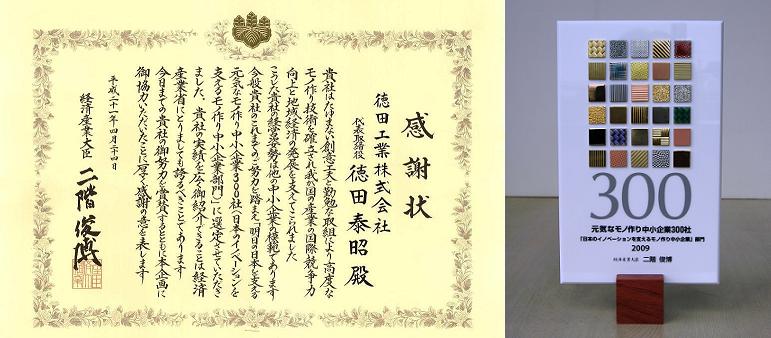 感謝状
徳田工業株式会社
代表取締役 徳田泰昭殿
貴社はたゆまない創意工夫と勤勉な取組により高度な
モノ作り技術を確立され我が国の産業の国際競争力
向上と地域経済の発展を支えてこられました
こうした貴社の経営姿勢は他の中小企業の模範であります
今般貴社のこれまでのご努力を踏まえ「明日の日本を支える
元気なモノ作り中小企業300社(日本のイノベーションを
支えるモノ作り中小企業部門)」に選定させていただき
ました。貴社の実績を広く御紹介できることは経済
産業省にとりましても誇るべきことであります
今日までの貴社の御努力を賞賛するとともに本企画に
御協力いただいたことに厚く感謝の意を表します
平成二十一年四月二十四日
経済産業大臣 二階俊博
300
元気なモノ作り中小企業300社
「日本のイノベーションを支えるモノ作り中小企業」部門
2009
経済産業大臣 二階 俊博